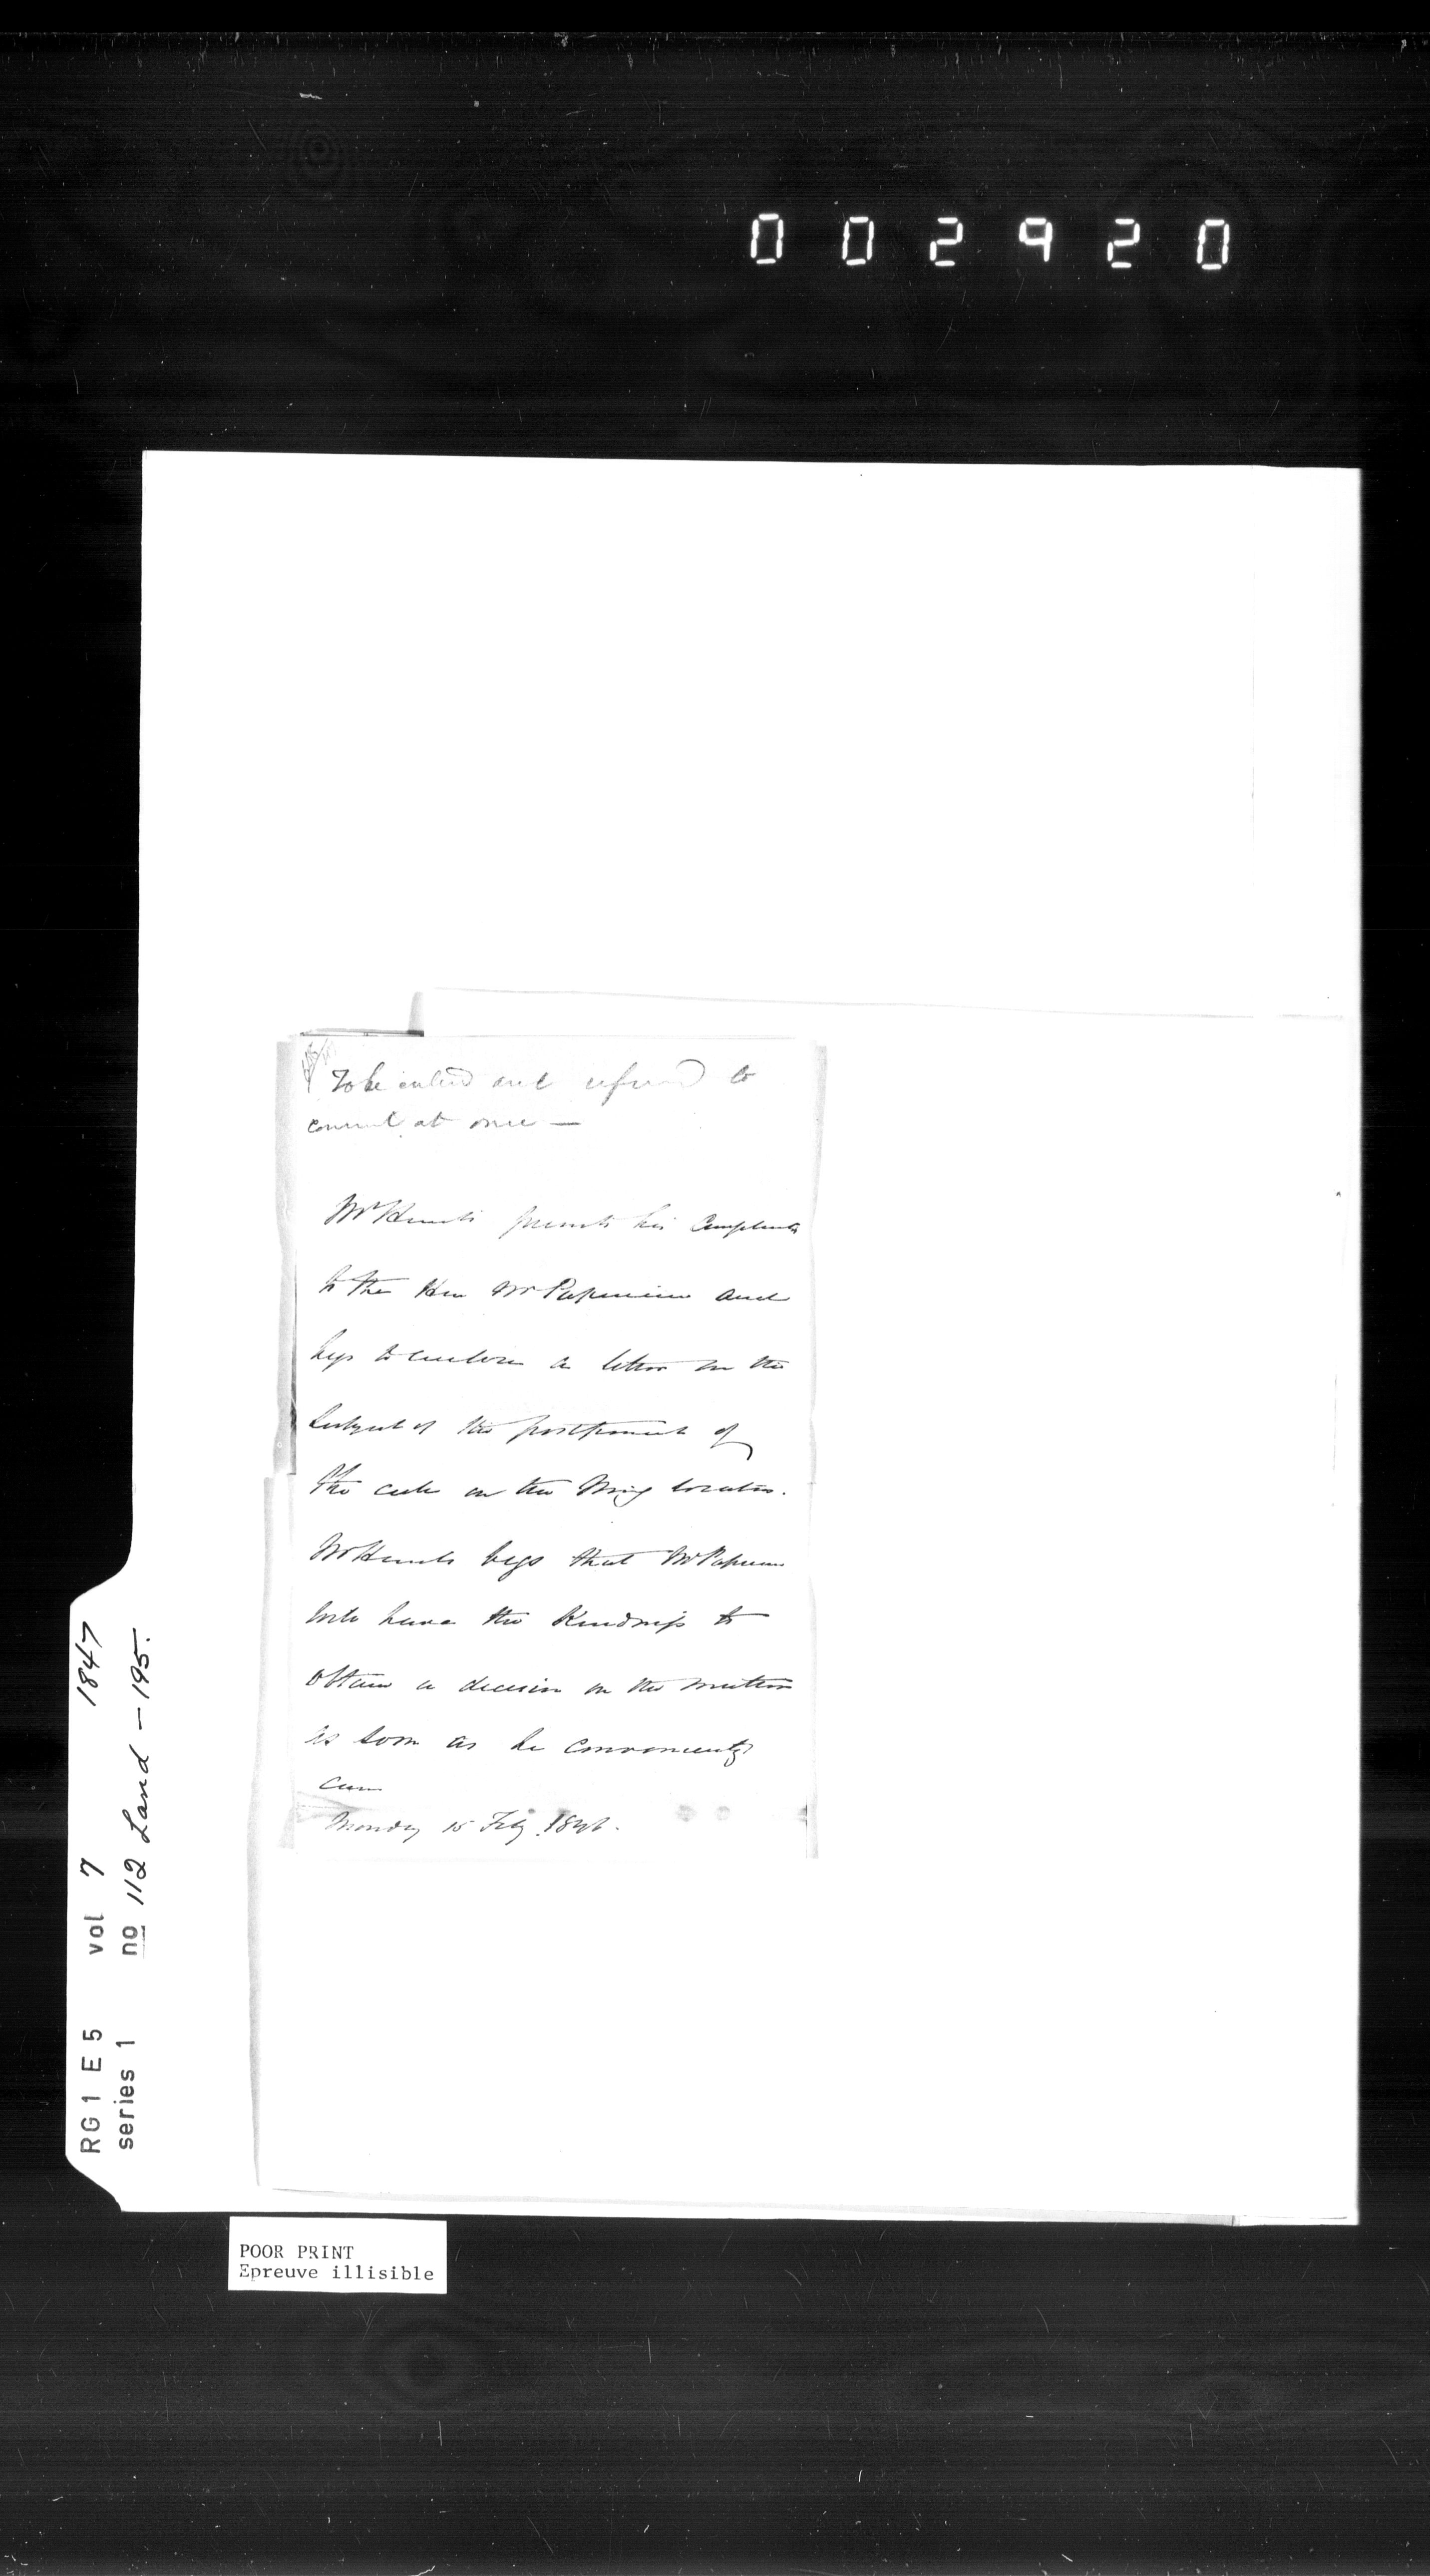 002920
To be entered and referred to
council at once —
presents his Compliments
to the Hon Mr Papineau and
begs to enclose a letter on the
subject of the postponement of
the sale on the Mining location.
begs that Mr Papineau
will have the Kindness to
obtain a decision on the matter
as soon as he conveniently
can
Monday 15 Feby
RG1 E5 vol 7 1847
series 1 no 112 Land – 195.
POOR PRINT
Epreuve illisible